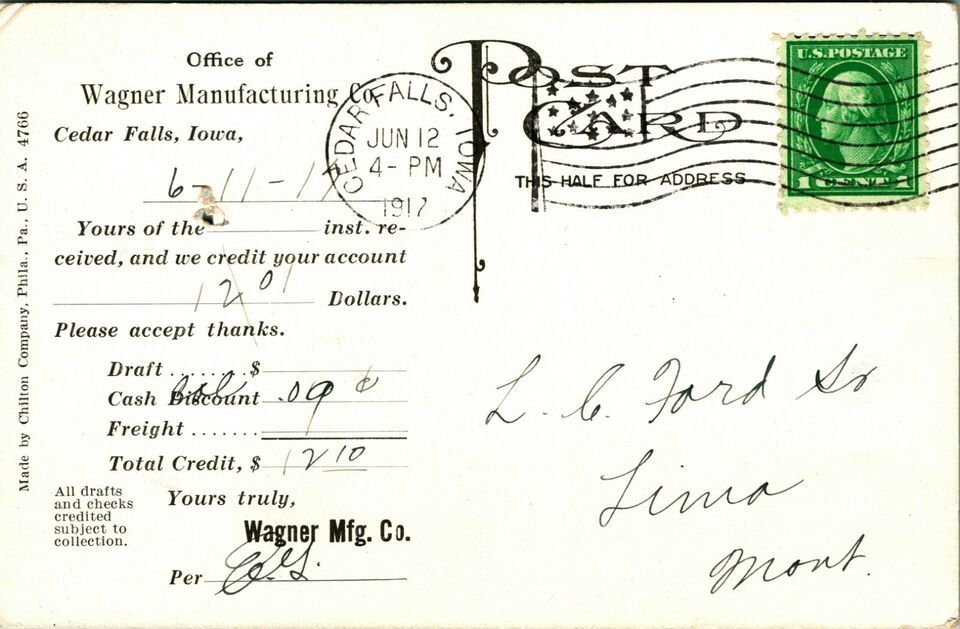 Office of
Wagner Manufacturing Co.
Cedar Falls, Iowa,
6-11-17
Yours of the inst. re-
ceived, and we credit your account
12 01 Dollars.
Please accept thanks.
Draft ........ $
Cash Discount .09 ¢
Freight .......
Total Credit, $ 12 10
All drafts
and checks
credited
subject to
collection.
Yours truly,
Wagner Mfg. Co.
Per
Made by Chilton Company, Phila., Pa., U. S. A. 4766
CEDAR FALLS, IOWA
JUN 12
4-PM
1917
POST
CARD
THIS HALF FOR ADDRESS
U.S. POSTAGE
1 CENT 1
L. C. Ford Sr
Lima
Mont.